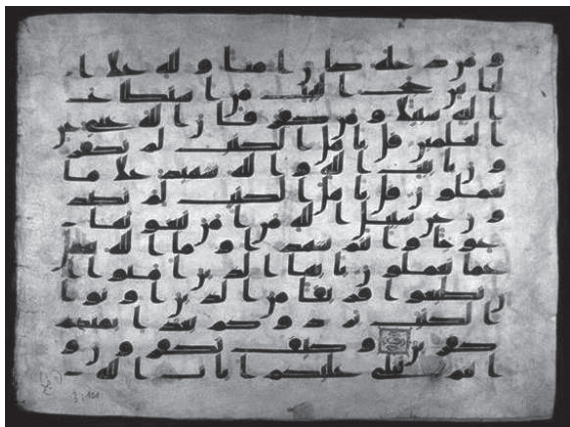 و من دخله كان امنا و لله علا ا
لناس حج البيت من استطاع
اليه سبيلا و من كفر فان الله غني عن
العلمين قل ياهل الكتب لم تكفر
ون بايت الله و الله شهيد علا ما
تعملون قل ياهل الكتب لم تصد
ون عن سبيل الله من امن تبغونها
عوجا و انتم شهدا و ما الله بغفل
عما تعملون يايها الذين امنوا ا
ن تطيعوا فريقا من الذين اوتوا
الكتب يردوكم بعد ايمنكم
كفرين و كيف تكفرون و
انتم تتلى عليكم ايت الله
3:101